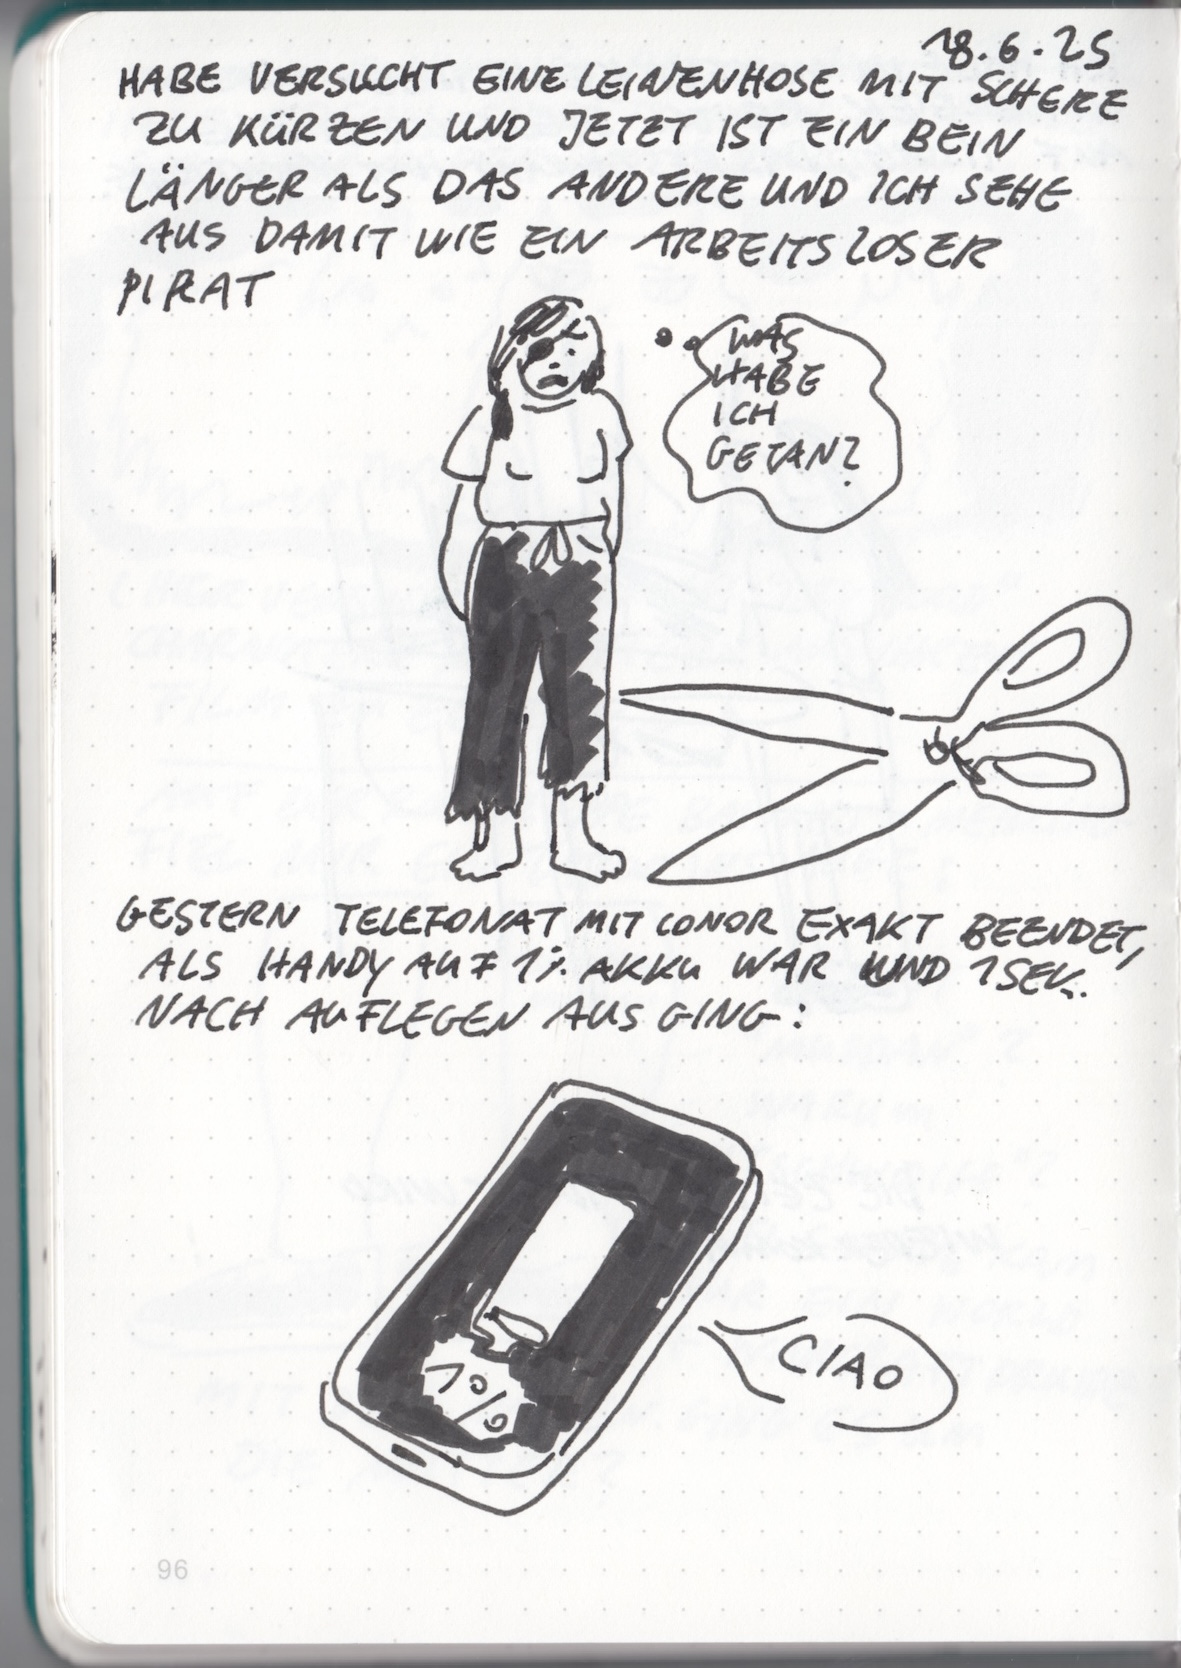 18.6.25
HABE VERSUCHT EINE LEINENHOSE MIT SCHERE
ZU KÜRZEN UND JETZT IST EIN BEIN
LÄNGER ALS DAS ANDERE UND ICH SEHE
AUS DAMIT WIE EIN ARBEITSLOSER
PIRAT
WAS
HABE
ICH
GETAN?
GESTERN TELEFONAT MIT CONOR EXAKT BEENDET,
ALS HANDY AUF 1% AKKU WAR UND 1 SEK.
NACH AUFLEGEN AUSGING:
1%
CIAO
96